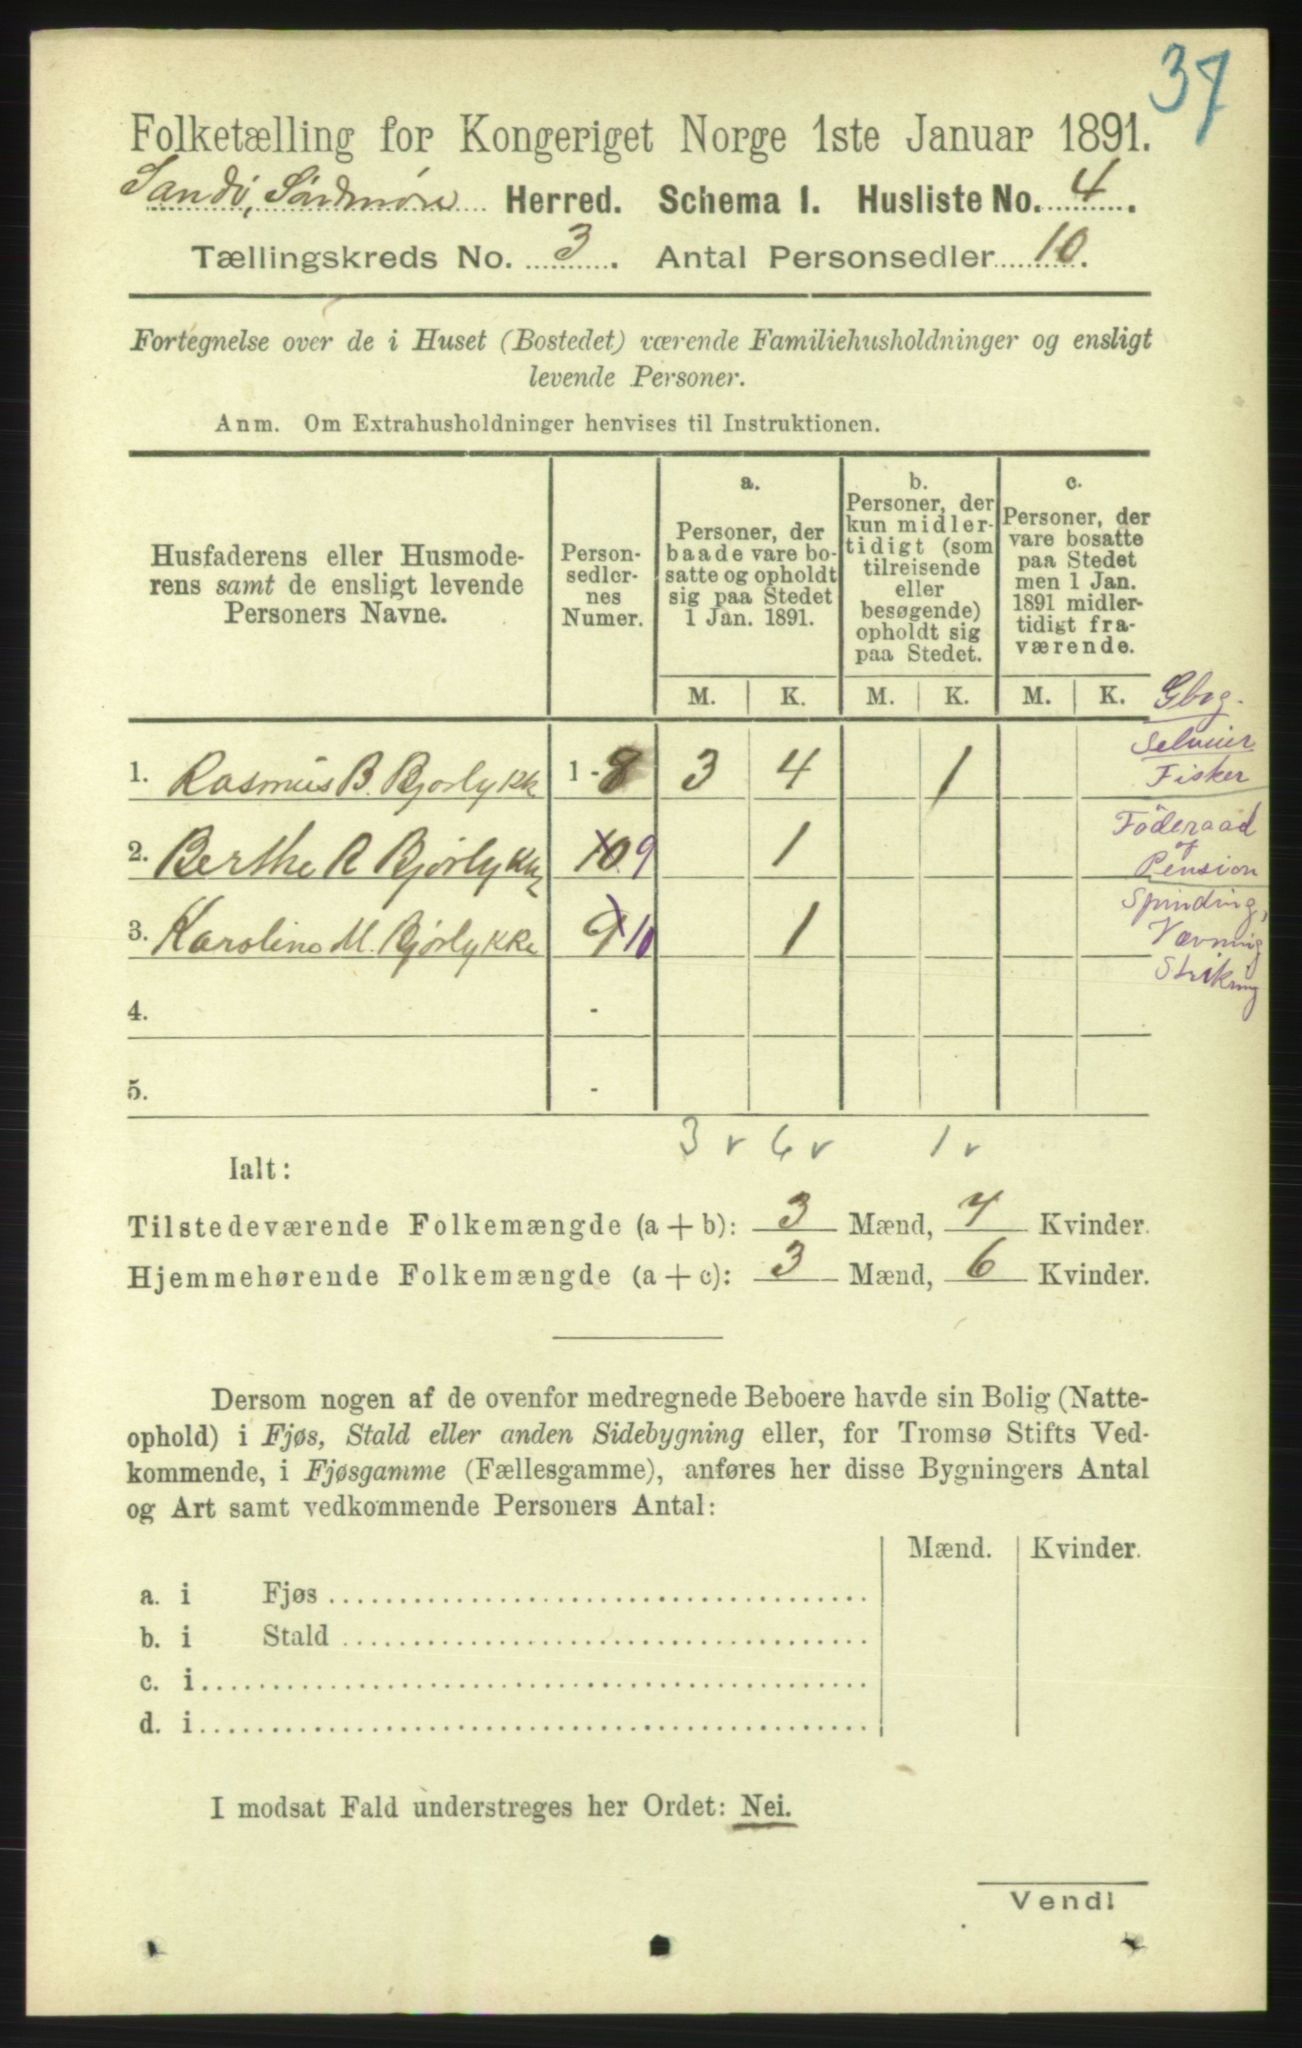 37
Folketælling for Kongeriget Norge 1ste Januar 1891.
Sandø, Søndmøre Herred. Schema 1. Husliste No. 4.
Tællingskreds No. 3. Antal Personsedler 10.
Fortegnelse over de i Huset (Bostedet) værende Familiehusholdninger og ensligt
levende Personer.
Anm. Om Extrahusholdninger henvises til Instruktionen.
Husfaderens eller Husmode-
rens samt de ensligt levende
Personers Navne.
Person-
sedler-
nes
Numer.
a.
Personer, der
baade vare bo-
satte og opholdt
sig paa Stedet
1 Jan. 1891.
b.
Personer, der
kun midler-
tidigt (som
tilreisende
eller
besøgende)
opholdt sig
paa Stedet.
c.
Personer, der
vare bosatte
paa Stedet
men 1 Jan.
1891 midler-
tidigt fra-
værende.
M. K. M. K. M. K.
Gbrg.
Selveier
Fisker
1. Rasmus B. Bjørlykk 1 - 8 3 4 1
Føderaad
og
Pension
2. Berthe R Bjørlykke 10 9 1
Spinding,
Vævning
Strikning
3. Karoline M. Bjørlykke 9 10 1
4. -
5. -
3 v 6 v 1 v
Ialt:
Tilstedeværende Folkemængde (a + b): 3 Mænd, 7 Kvinder.
Hjemmehørende Folkemængde (a + c): 3 Mænd, 6 Kvinder.
Dersom nogen af de ovenfor medregnede Beboere havde sin Bolig (Natte-
ophold) i Fjøs, Stald eller anden Sidebygning eller, for Tromsø Stifts Ved-
kommende, i Fjøsgamme (Fællesgamme), anføres her disse Bygningers Antal
og Art samt vedkommende Personers Antal:
Mænd. Kvinder.
a. i Fjøs
b. i Stald
c. i
d. i
I modsat Fald understreges her Ordet: Nei.
Vend!